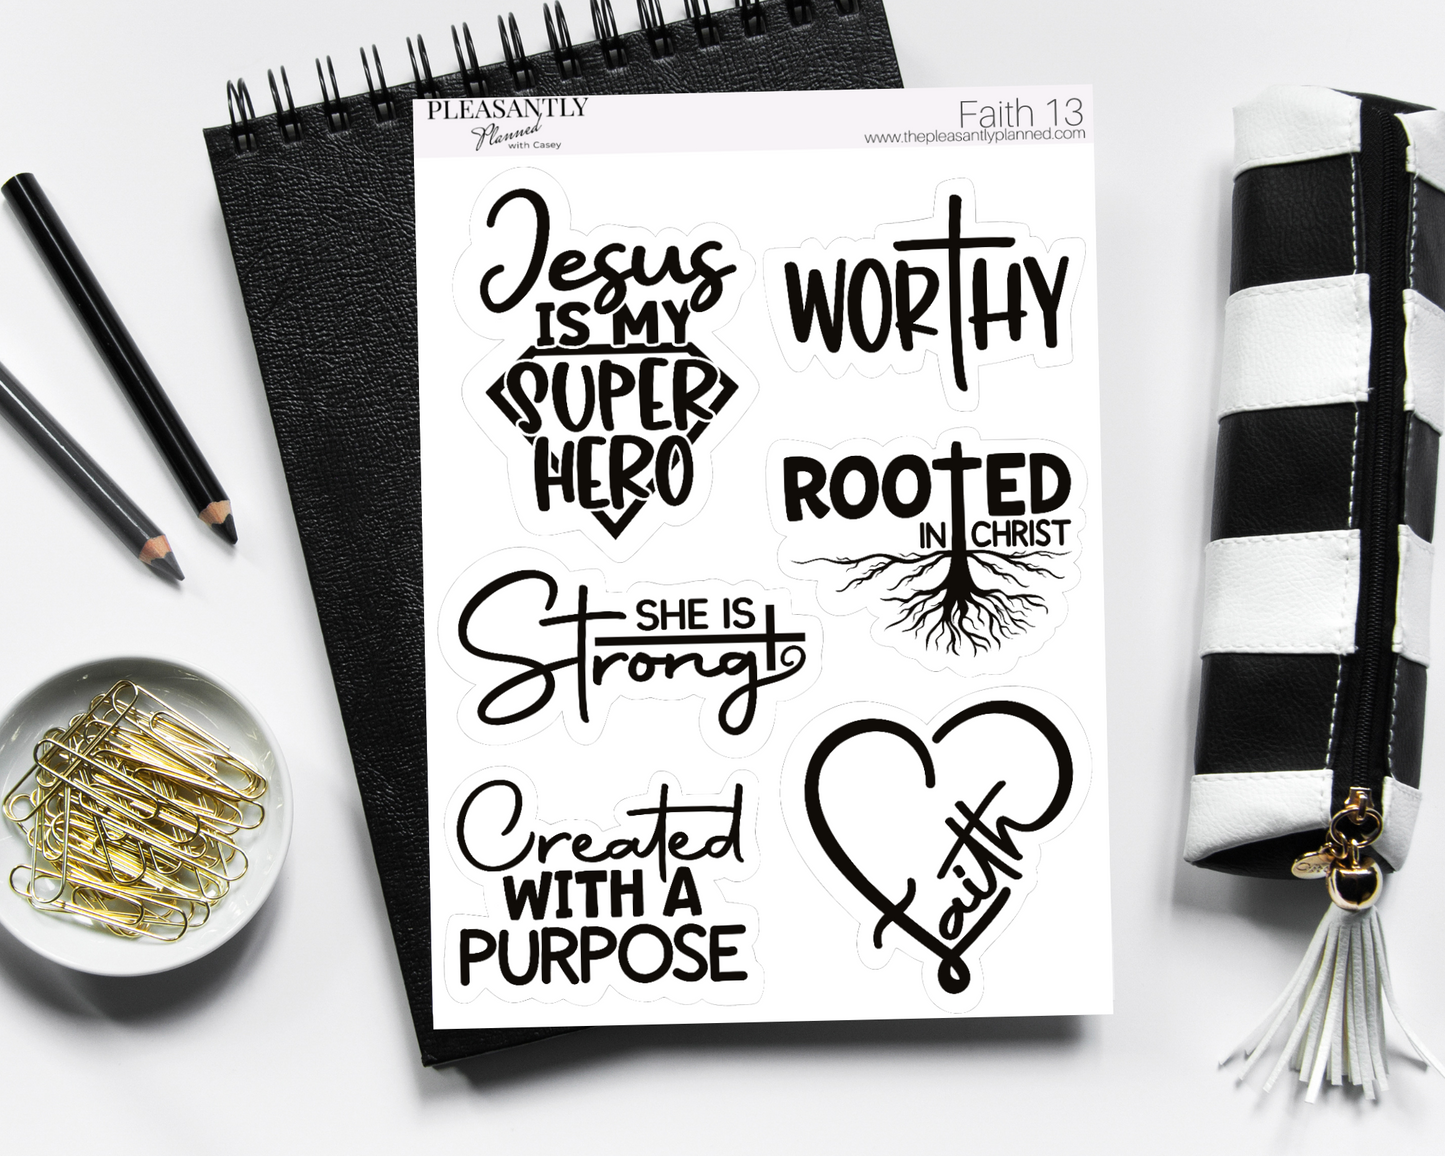 PLEASANTLY
Planned
with Casey
Faith 13
www.thepleasantlyplanned.com
Jesus
IS MY
SUPER
HERO
WORTHY
ROOTED
IN CHRIST
SHE IS
Strong
Created
WITH A
PURPOSE
faith